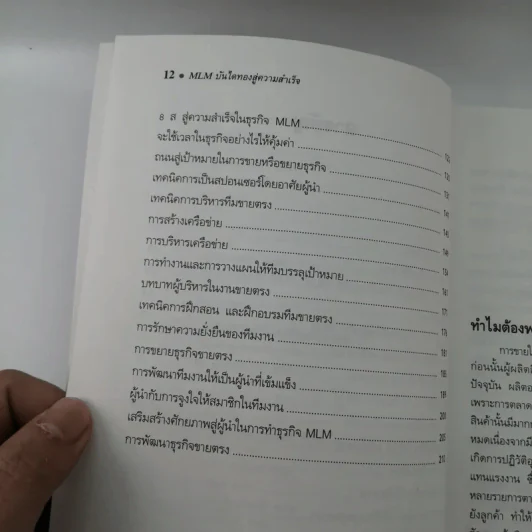 12 • MLM บันไดทองสู่ความสำเร็จ
8 ส สู่ความสำเร็จในธุรกิจ MLM
จะใช้เวลาในธุรกิจอย่างไรให้คุ้มค่า
ถนนสู่เป้าหมายในการขายหรือขยายธุรกิจ
เทคนิคการเป็นสปอนเซอร์โดยอาศัยผู้นำ
เทคนิคการบริหารทีมขายตรง
การสร้างเครือข่าย
การบริหารเครือข่าย
การทำงานและการวางแผนให้ทีมบรรลุเป้าหมาย
บทบาทผู้บริหารในงานขายตรง
เทคนิคการฝึกสอน และฝึกอบรมทีมขายตรง
การรักษาความยั่งยืนของทีมงาน
การขยายธุรกิจขายตรง
การพัฒนาทีมงานให้เป็นผู้นำที่เข้มแข็ง
ผู้นำกับการจูงใจให้สมาชิกในทีมงาน
เสริมสร้างศักยภาพสู่ผู้นำในการทำธุรกิจ MLM
การพัฒนาธุรกิจขายตรง
ทำไมต้อง
การขาย
ก่อนนั้นผู้ผลิต
ปัจจุบัน ผลิต
เพราะการตลาด
สินค้านั้นมีมาก
หมดเนื่องจาก
เกิดการปฏิวัติ
แทนแรงงาน
หลายรายการ
ยังลูกค้า ทำให้